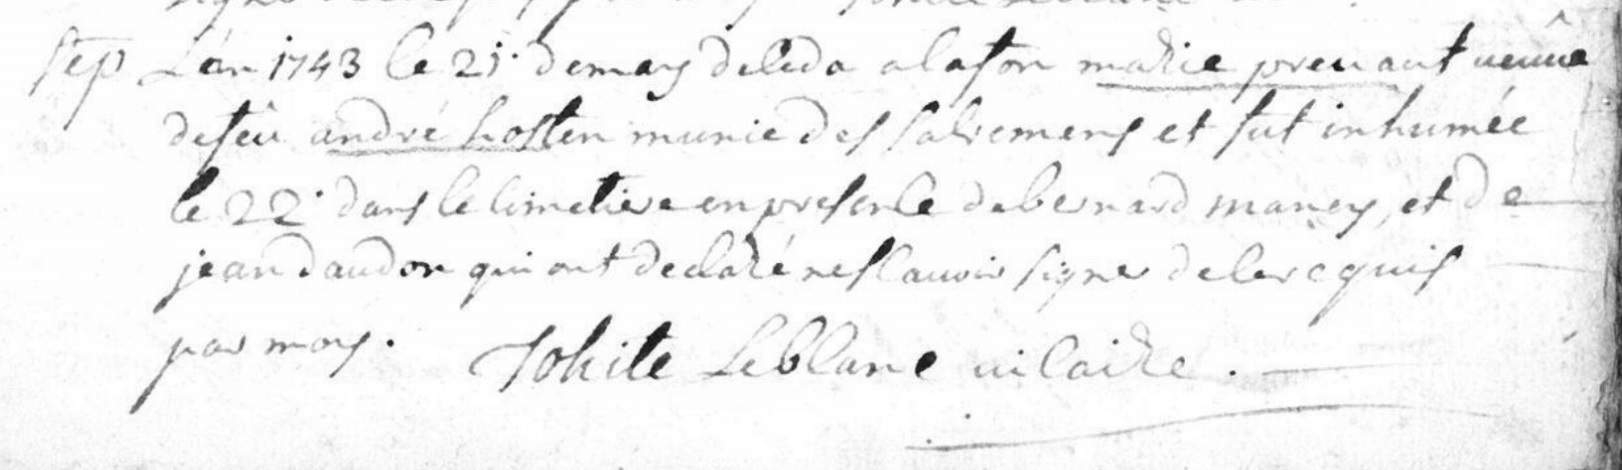 sep L'an 1743 le 21. de may deleda a lafon marie prenant veuve
de feu andré hosten munie des sacremens et fut inhumée
le 22. dans le cimetiere en presence de bernard maney, et de
jean daudon qui ont declaré ne scauoir signer de ce requis
par moy. Leblanc uicaire.